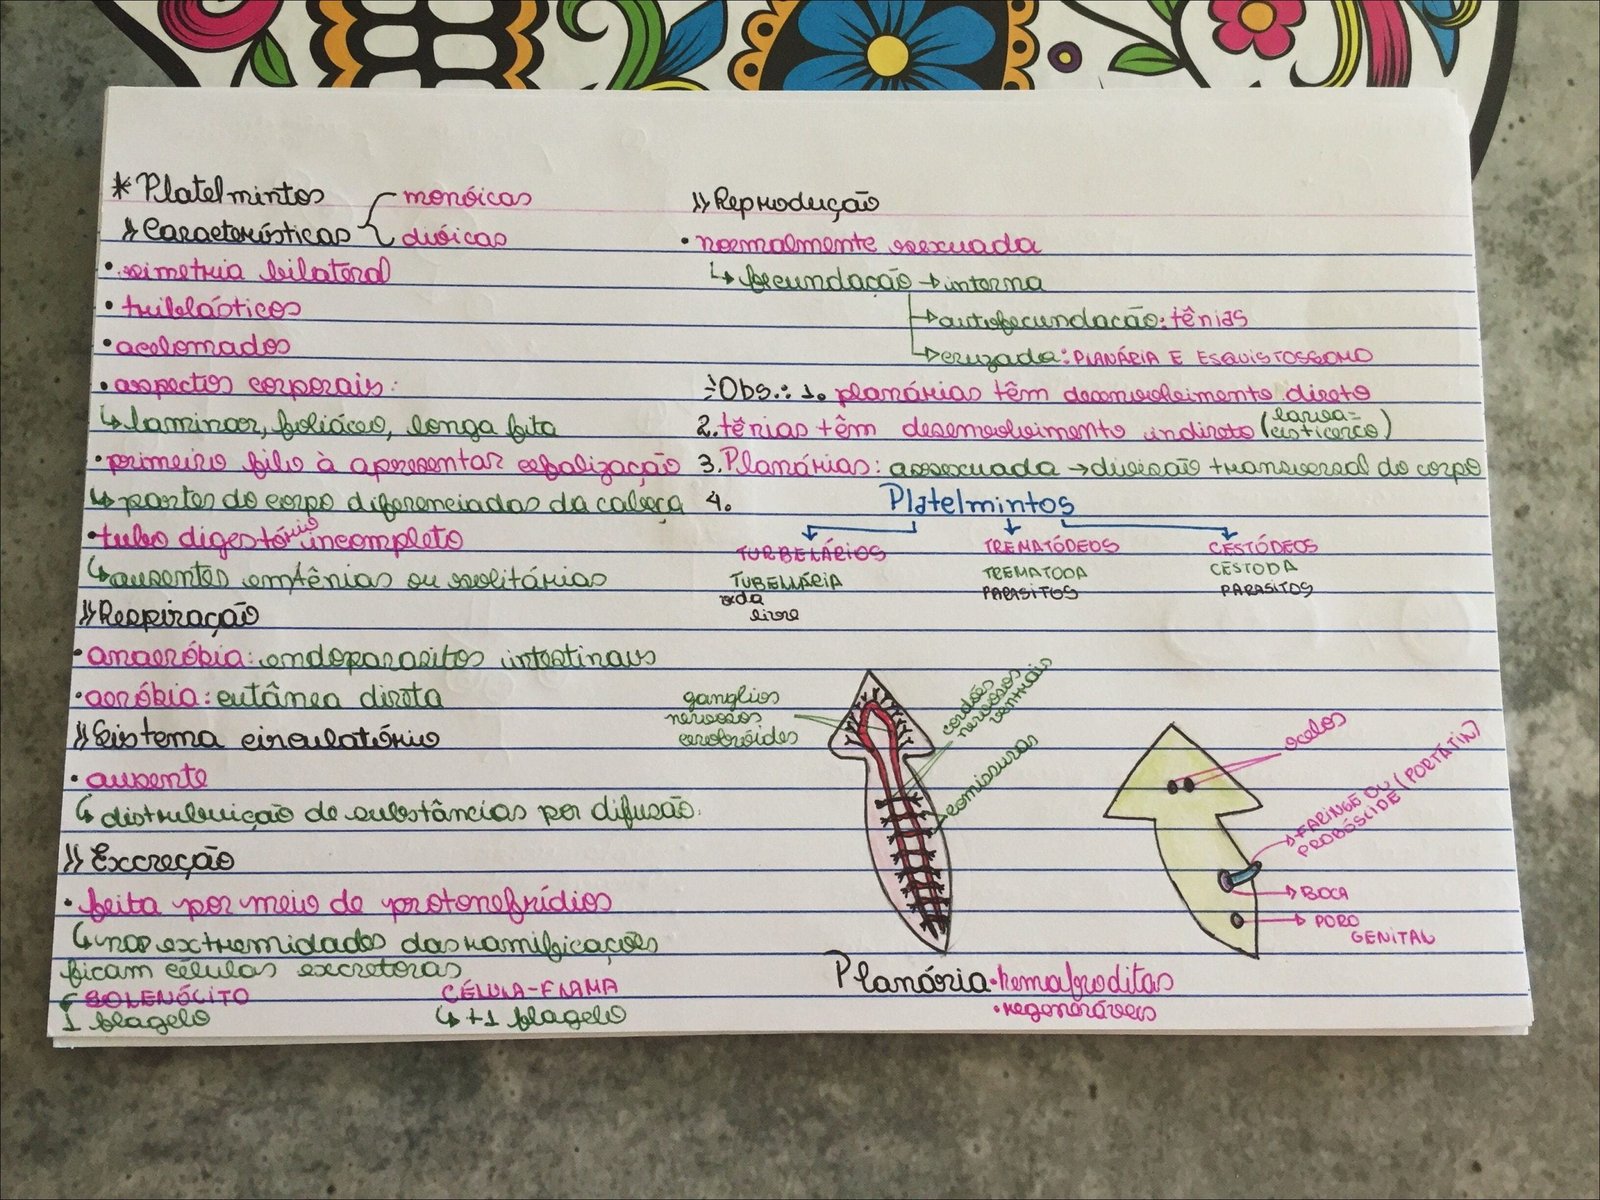 * Platelmintos
monóicas
» Características
dióicas
• simetria bilateral
• triblásticos
• acelomados
• aspectos corporais:
↳ laminar, foliáceo, longa fita
• primeiro filo à apresentar cefalização
↳ partes do corpo diferenciadas da cabeça
• tubo digestório incompleto
↳ ausentes em tênias ou solitárias
» Respiração
• anaeróbia: endoparasitos intestinais
• aeróbia: cutânea direta
» Sistema circulatório
• ausente
↳ distribuição de substâncias por difusão.
» Excreção
• feita por meio de protonefrídios
↳ nas extremidades das ramificações
ficam células excretoras
SOLENÓCITO
1 flagelo
CÉLULA-FLAMA
↳ +1 flagelo
» Reprodução
• normalmente sexuada
↳ fecundação → interna
→ autofecundação: tênias
→ cruzada: PLANÁRIA E ESQUISTOSSOMO
Obs.: 1. planárias têm desenvolvimento direto
2. tênias têm desenvolvimento indireto (larva= cisticerco)
3. Planárias: assexuada → divisão transversal do corpo
4. Platelmintos
TURBELÁRIOS
TUBELLÁRIA
vida
livre
TREMATÓDEOS
TREMATODA
PARASITOS
CESTÓDEOS
CESTODA
PARASITOS
ganglios
nervosos
cerebróides
cordões
nervosos
ventrais
comissuras
ocelos
→ FARINGE OU
PROBÓSCIDE (PORTÁTIL)
→ BOCA
→ PORO
GENITAL
Planária • hemafroditas
• regeneráveis